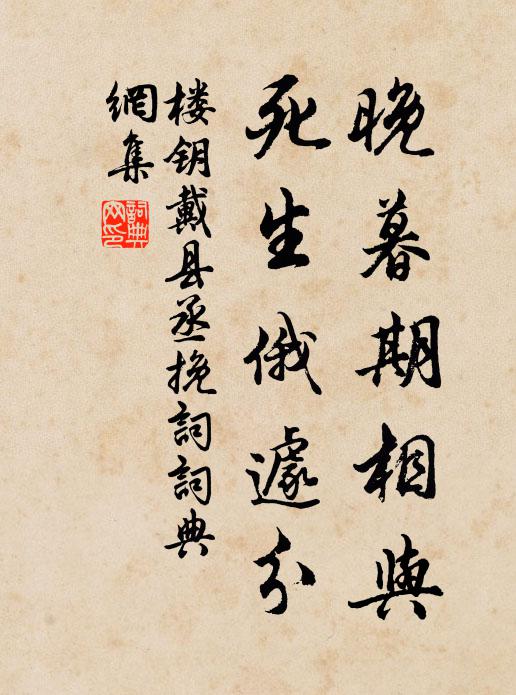 晚暮期相與
死生俄遽分
楼钥戴县丞挽詞詞典
網集
詞典
网印